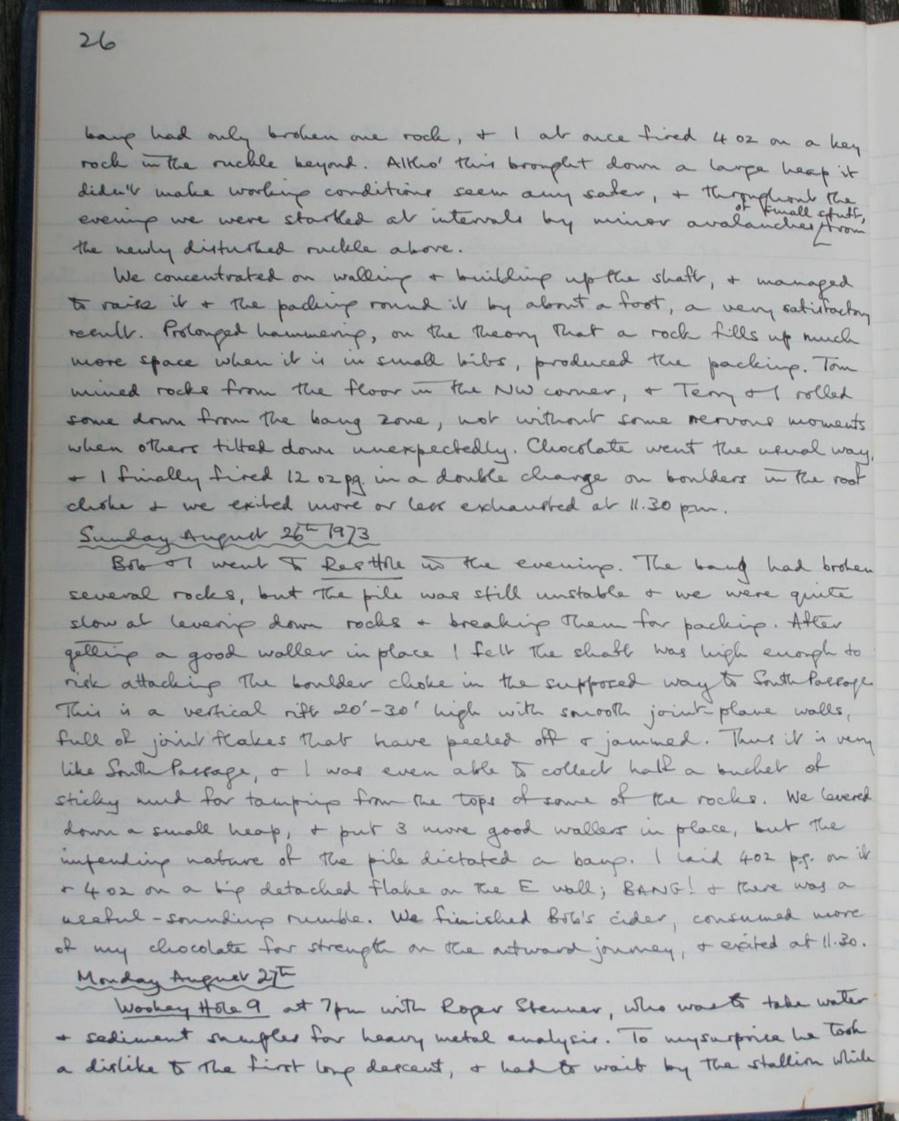 26
bang had only broken one rock, & I at once fired 4 oz on a key
rock in the ruckle beyond. Altho' this brought down a large heap it
didn't make working conditions seem any safer, & throughout the
evening we were startled at intervals by minor avalanches of small stuff, from
the newly disturbed ruckle above.
We concentrated on walling & building up the shaft, & managed
to raise it & the packing round it by about a foot, a very satisfactory
result. Prolonged hammering, on the theory that a rock fills up much
more space when it is in small bits, produced the packing. Tom
mined rocks from the floor in the NW corner, & Terry & I rolled
some down from the bang zone, not without some nervous moments
when others tilted down unexpectedly. Chocolate went the usual way,
& I finally fired 12 oz pg in a double charge on boulders in the roof
choke & we exited more or less exhausted at 11.30 pm.
Sunday August 26th 1973
Bob & I went to Res Hole in the evening. The bang had broken
several rocks, but the pile was still unstable & we were quite
slow at levering down rocks & breaking them for packing. After
getting a good waller in place I felt the shaft was high enough to
risk attacking the boulder choke in the supposed way to South Passage
This is a vertical rift 20'-30' high with smooth joint-plane walls,
full of joint flakes that have peeled off & jammed. Thus it is very
like South Passage, & I was even able to collect half a bucket of
sticky mud for tamping from the tops of some of the rocks. We levered
down a small heap, & put 3 more good wallers in place, but the
impending nature of the pile dictated a bang. I laid 4oz p.g. on it
& 4 oz on a big detached flake on the E wall; BANG! & there was a
useful-sounding rumble. We finished Bob's cider, consumed more
of my chocolate for strength on the outward journey, & exited at 11.30.
Monday August 27th
Wookey Hole 9 at 7pm with Roger Stenner, who was to take water
& sediment samples for heavy metal analysis. To my surprise he took
a dislike to the first long descent, & had to wait by the stallion while